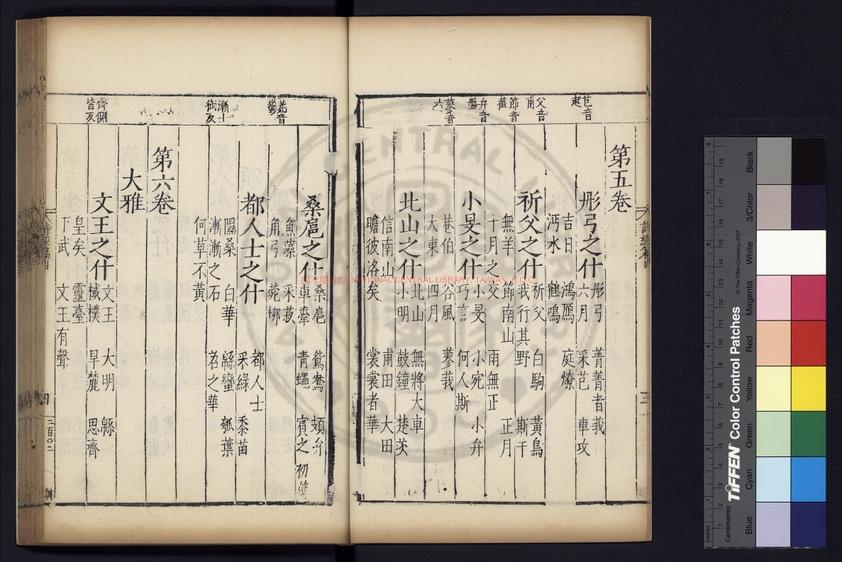 第五卷
彤弓之什 彤弓 菁菁者莪
六月 采芑 車攻
吉日 鴻鴈 庭燎
沔水 鶴鳴
祈父之什 祈父 白駒 黃鳥
我行其野 斯干
無羊 節南山 正月
十月之交 雨無正
小旻之什 小旻 小宛 小弁
巧言 何人斯
巷伯 谷風 蓼莪
大東 四月
北山之什 北山 無將大車
小明 鼓鐘 楚茨
信南山 甫田 大田
瞻彼洛矣 裳裳者華
芑音
父音
節音
弁音
蓼音
六
桑扈之什 桑扈 鴛鴦 頍弁
車舝 青蠅 賓之初筵
魚藻 采菽
角弓 菀柳
都人士之什 都人士
采綠 黍苗
隰桑 白華 緜蠻 瓠葉
漸漸之石 苕之華
何草不黃
第六卷
大雅
文王之什 文王 大明 緜
棫樸 旱麓 思齊
皇矣 靈臺
下武 文王有聲
菀音
漸士
銜反
齊側
皆反
NATIONAL CENTRAL LIBRARY, TAIWAN, R.O.C.
CENTRAL
LIBRARY
TIFFEN Color Control Patches
© The Tiffen Company, 2007
Inches
Centimetres
Blue
Cyan
Green
Yellow
Red
Magenta
White
3/Color
Black